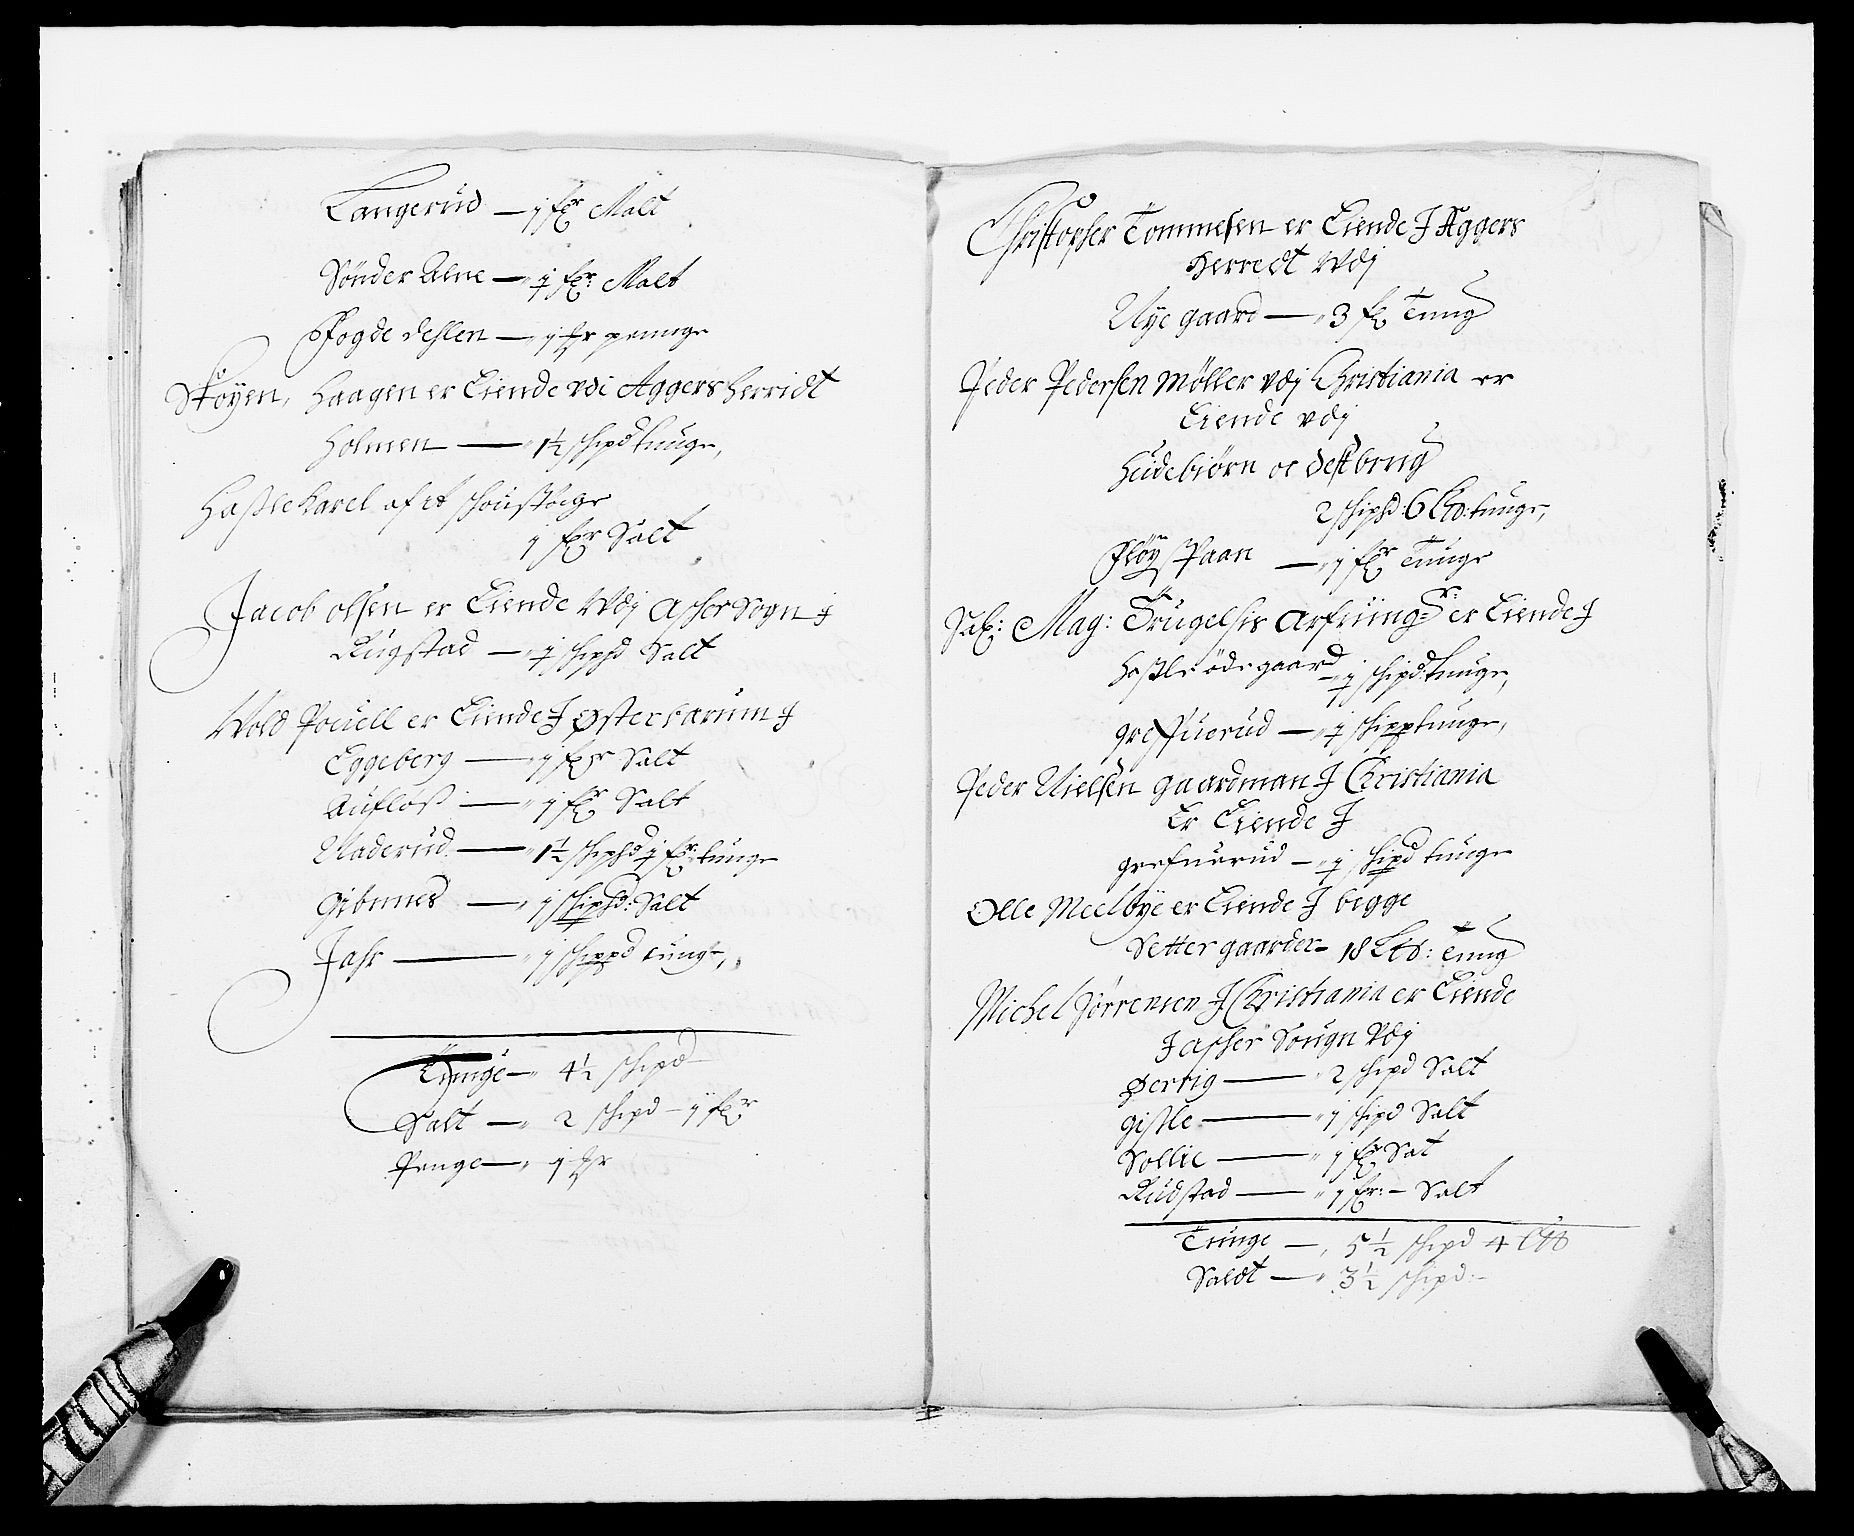 Langerud — j fr Malt
Sønder Alne — j fr: Malt
Fogde dehlen — j fr penge
Skøyen, Haagen er Eiende vdi Aggers herridt
Holmen — 1½ schipd tunge,
Hassle Karel af et
j fr Salt
Jacob olsen er Eiende Vdj Asker Sogn j
Rugstad — j schipd Salt
Wold Pouell er Eiende J Østerbarum J
Eggeberg — j fr Salt
Aufloss — j fr Salt
Naderud — 1½ schipd j fr: tunge
Gibnnes — j schipd: Salt
Jahr — j schippd tunge,
Tunge — 4½ schipd
Salt — 2 schipd — j fr
Penge — j fr
Christopher Tommesen er Eiende J Aggers
Herredt Vdj
Nye gaard — 3 fr Tung
Peder Pedersen Møller vdj Christiania er
Eiende vdj
Heidebiørn oc Vestbrug
2 schipd: 6 Lt: tunge,
Fløyspaan — j fr Tunge
Sal: Mag: Trugelsis Arfuing: er Eiende J
Hassle ødegaard — j schipd: tunge,
greffuerud — j schipp tunge,
Peder Nielsen gaardman J Christiania
Er Eiende J
grefuerud — j schipd tunge
Olle Meelbye er Eiende J begge
Setter gaarder — 18 Lt: Tung
Michel Jørrensen J Christiania er Eiende
J Asker Sougn Vdj
Berrig — 2 schipd Salt
gisle — j schipd Salt
Sollie — j fr Salt
Rudstad — j fr: — Salt
Tunge — 5½ schipd 4 Lt
Saldt — 3½ schipd: —